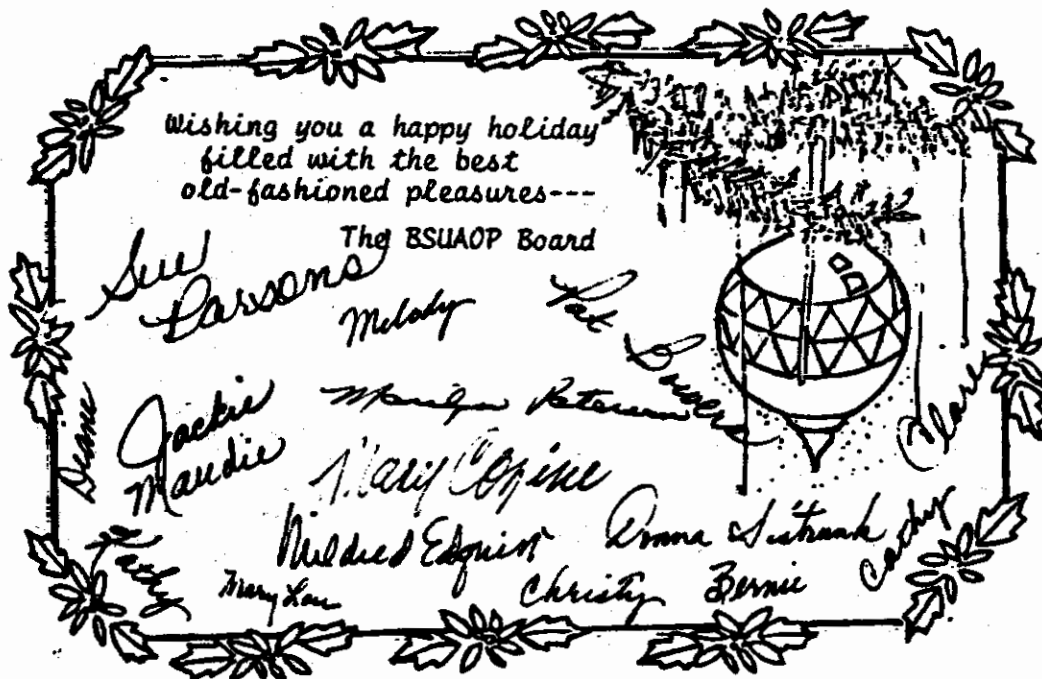 Wishing you a happy holiday
filled with the best
old-fashioned pleasures---
The BSUAOP Board
Sue
Parsons
Melody
Pat
Clare
Deane
Jackie
Maudie
Marilyn Paterson
Mary Cozine
Mildred Edquist
Donna Sistrunk
Cathy
Kathy
Mary Lou
Christy
Bernie